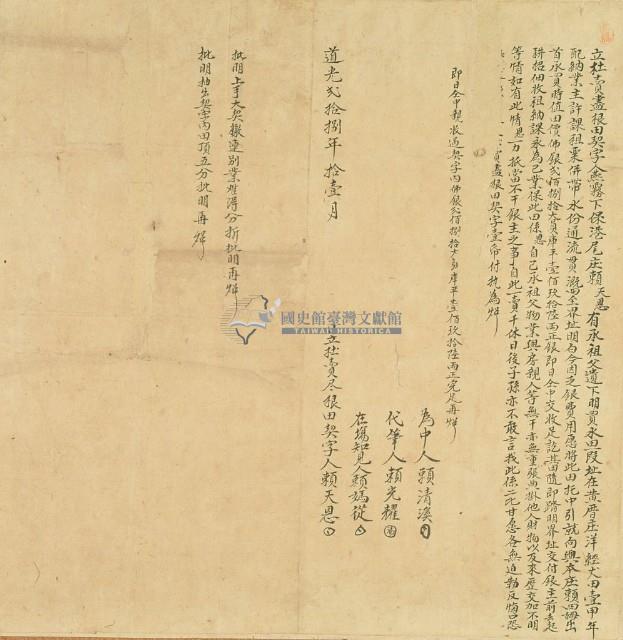 立杜賣盡根田契字人燕霧下保港尾庄賴天恩有承祖父遺下明買水田一段址在黄厝庄洋經丈田壹甲年
配納業主許課租粟併帶水份通流貫溉四至界址明白今因乏銀費用愿將此田托中引就向與本庄賴四出
首承買時值田價佛銀弍佰捌拾大員庫平壹佰玖拾陸兩正銀即日仝中交收足訖其田隨即踏明界址交付銀主前去起
耕招佃收租納課永為己業保此田係恩自己承祖父物業與房親人等無干亦無重張典掛他人財物以及來歷交加不明
等情如有此情恩一力抵當不干銀主之事自此一賣千休日後子孫亦不敢言找此係二比甘愿各無迫勒反悔口恐
賣盡根田契字壹帋付執為炤
即日仝中親收過契字內佛銀弍佰捌拾大員庫平壹佰玖拾陸兩正完足再炤
為中人賴清溪
代筆人賴光耀
在塲知見人賴媽從
道光弍拾捌年拾壹月
立杜賣尽根田契字人賴天恩
批明上手大契撽連別業难得分折批明再炤
批明抽出契字內田頂五分批明再炤
國史館臺灣文獻館
TAIWAN HISTORICA